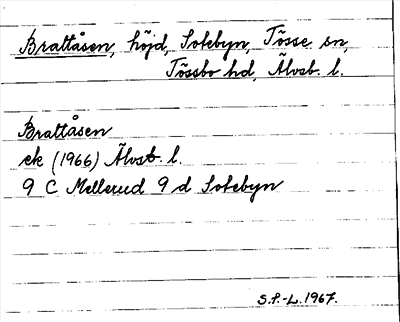 Brattåsen, höjd, Sotebyn, Tösse sn,
Tössbo hd, Älvsb. l.
Brattåsen
ek (1966) Älvsb. l.
9 C Mellerud 9 d Sotebyn
S.P.-L. 1967.